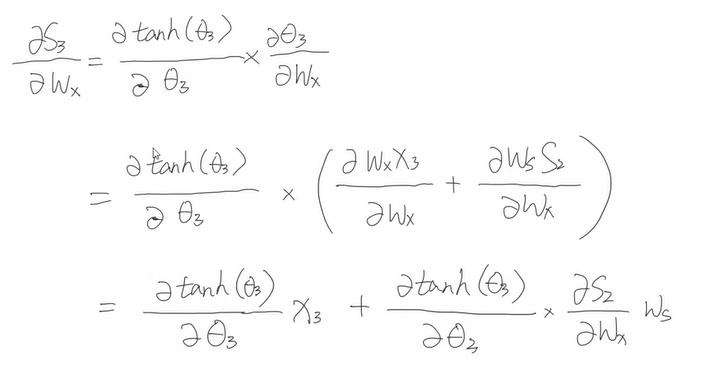 ∂S₃/∂Wₓ = ∂tanh(θ₃)/∂θ₃ × ∂θ₃/∂Wₓ
= ∂tanh(θ₃)/∂θ₃ × (∂WₓX₃/∂Wₓ + ∂WₛS₂/∂Wₓ)
= ∂tanh(θ₃)/∂θ₃ X₃ + ∂tanh(θ₃)/∂θ₃ × ∂S₂/∂Wₓ Wₛ